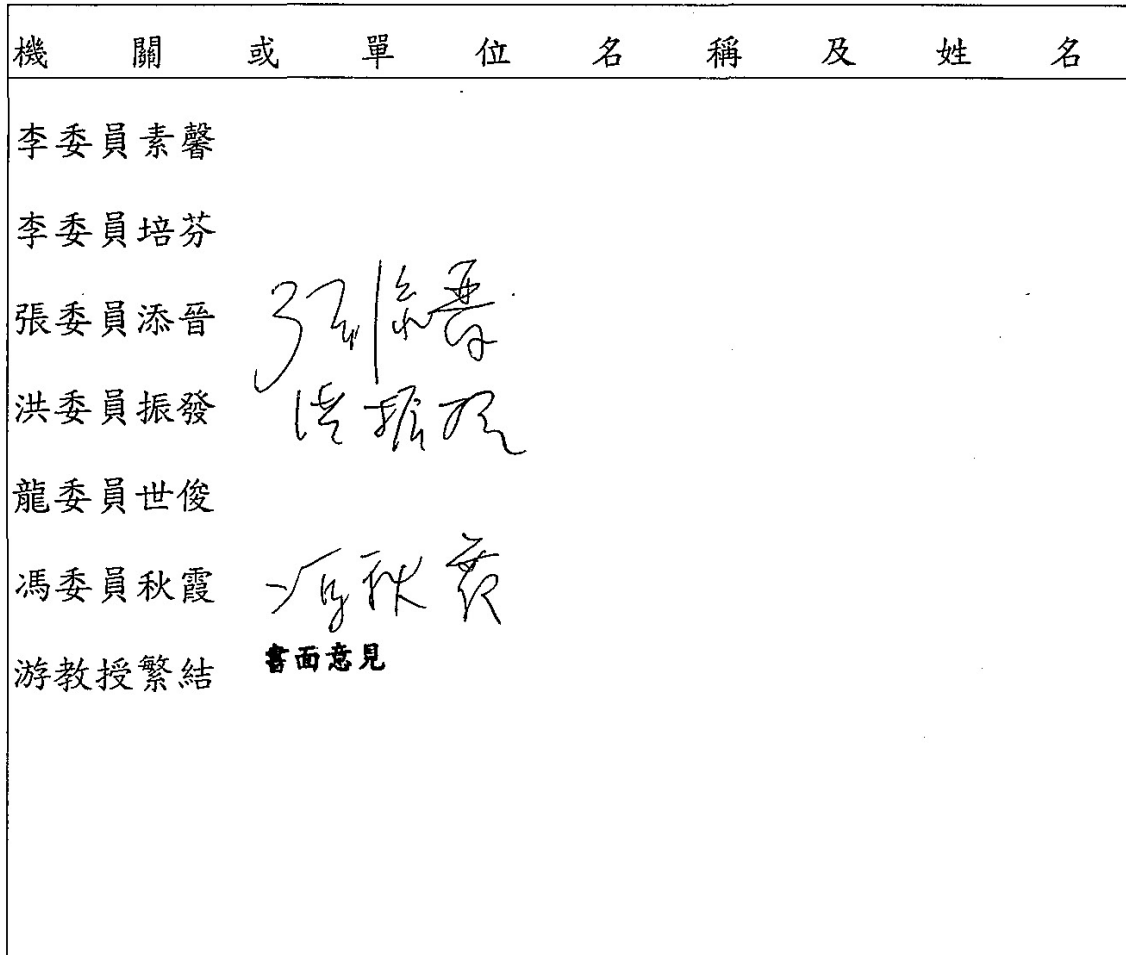 機關或單位名稱及姓名
李委員素馨
李委員培芬
張委員添晉
張添晉
洪委員振發
洪振發
龍委員世俊
馮委員秋霞 馮秋霞
游教授繁結 書面意見